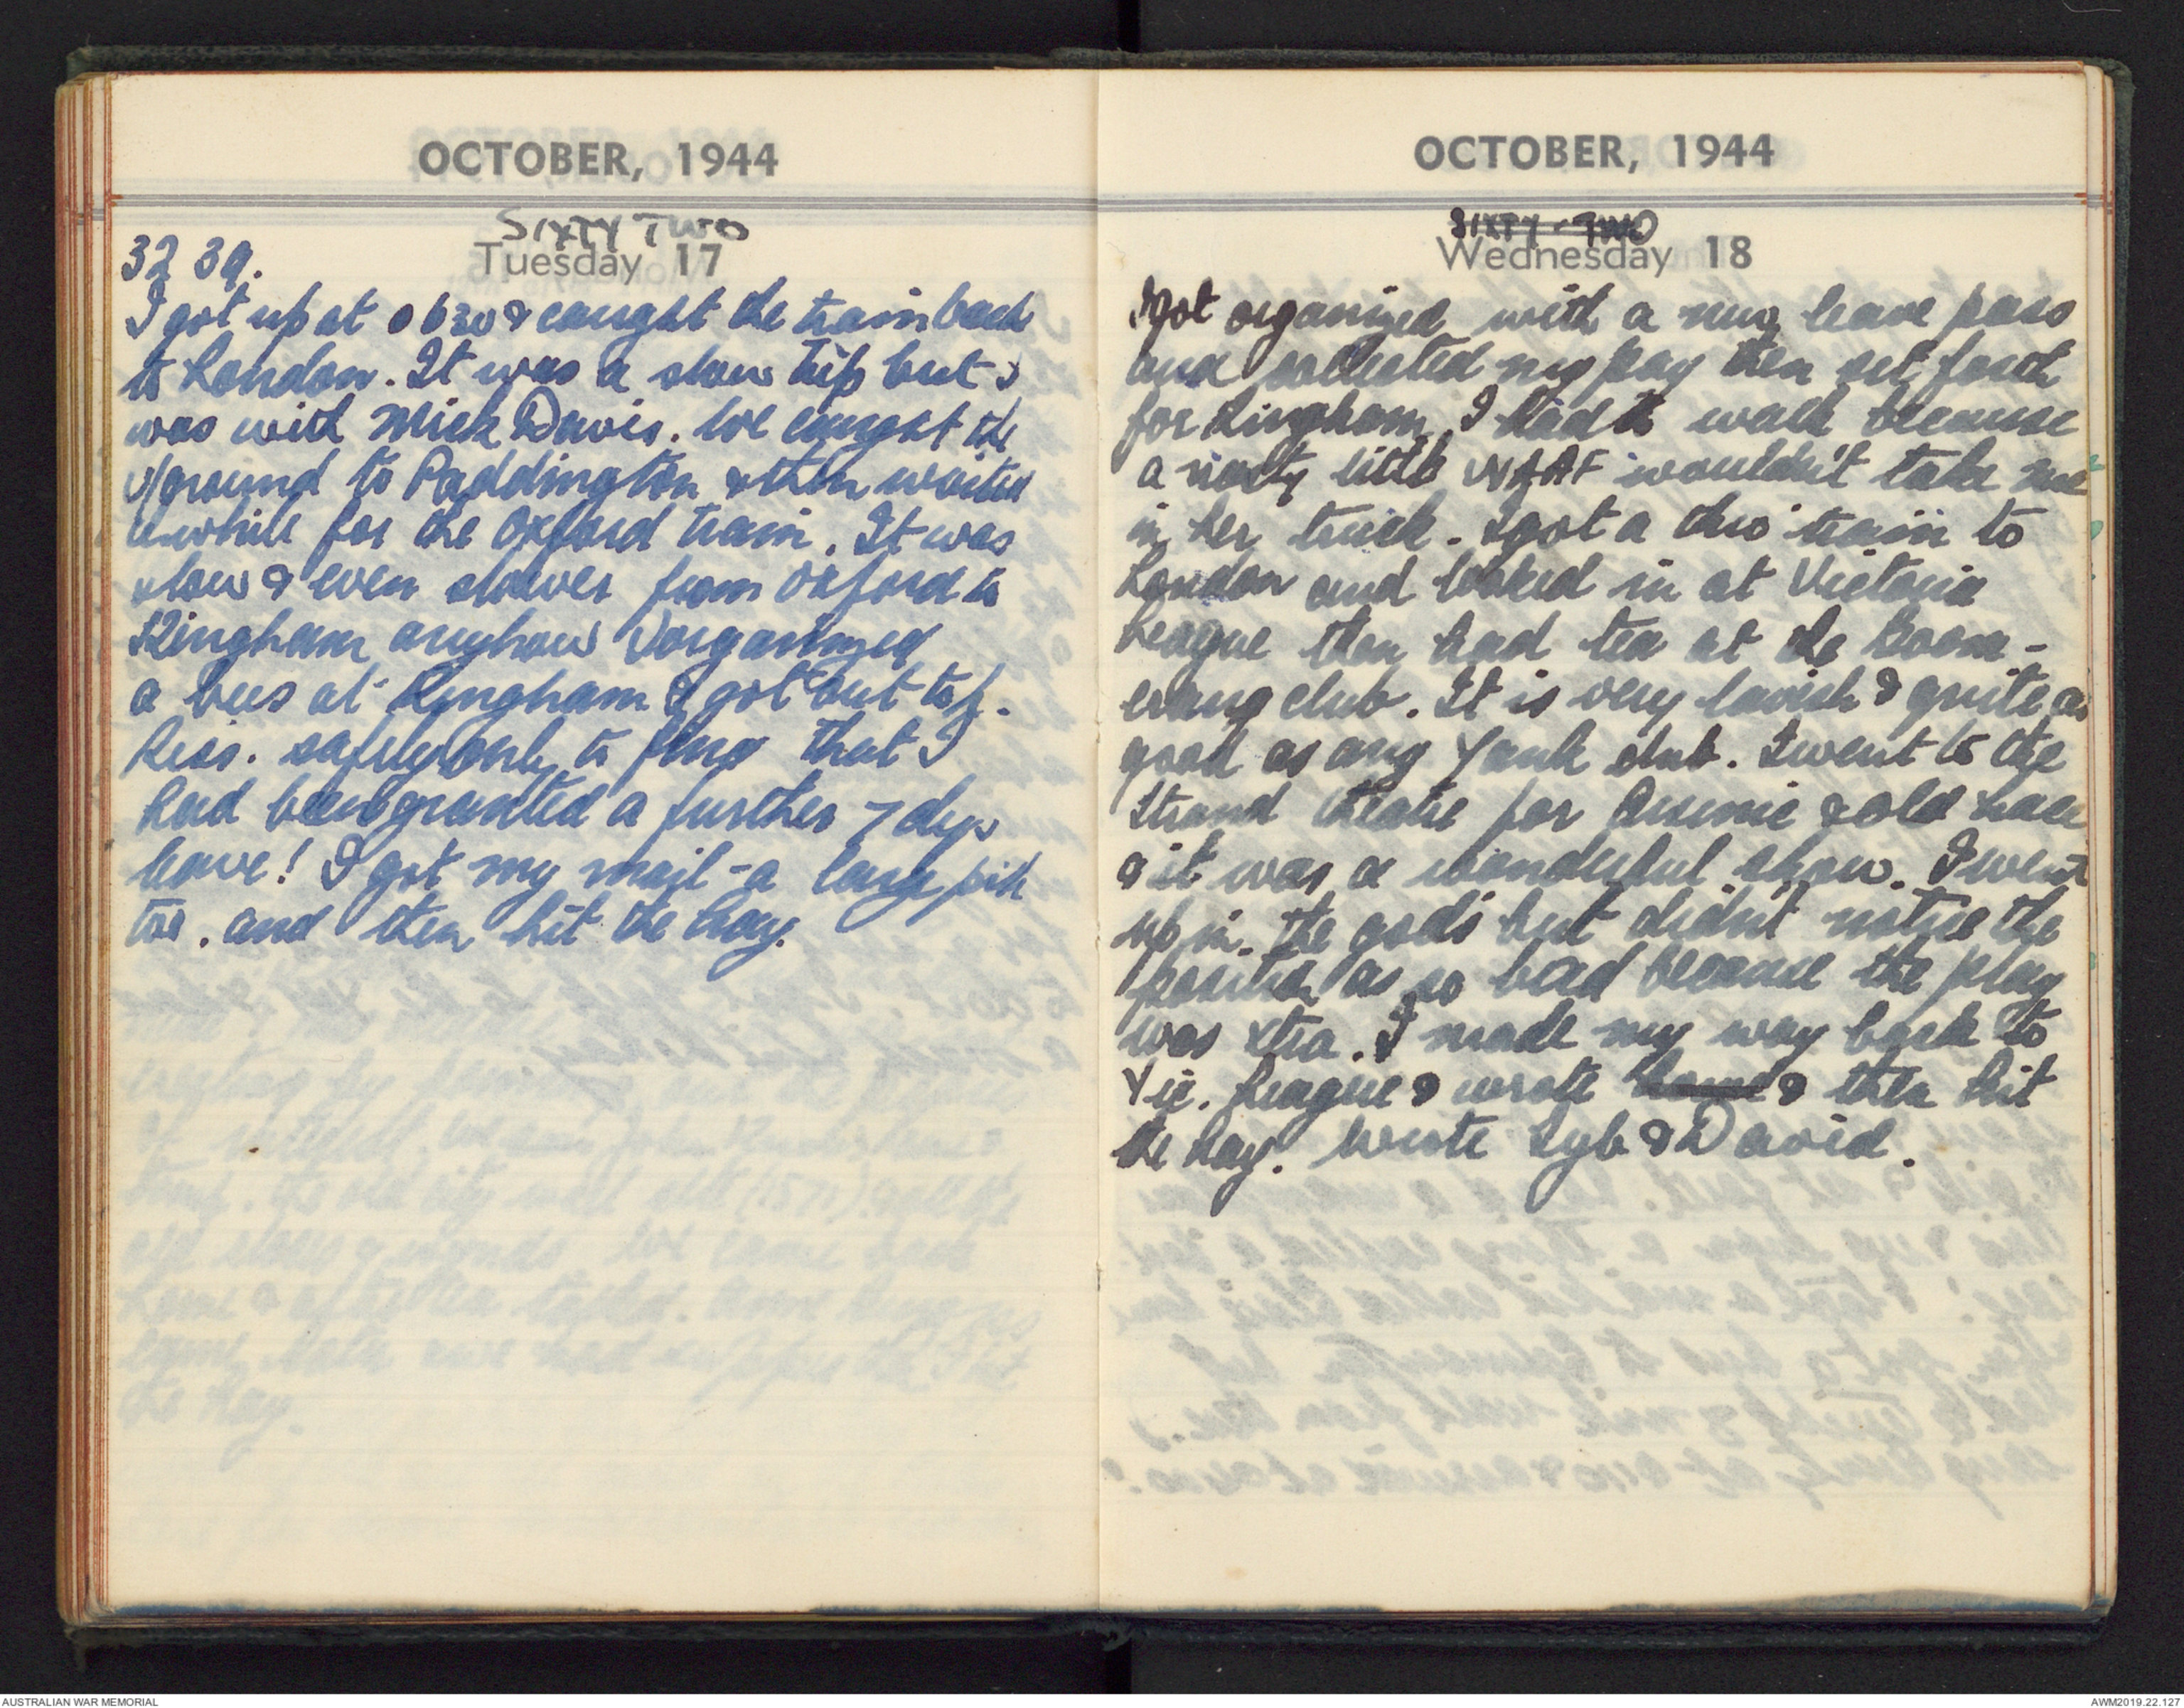 OCTOBER, 1944
SIXTY TWO
Tuesday 17
32 39.
I got up at 0630 & caught the train back
to London. It was a slow trip but I
was with Mick Davis. We caught the
u/ground to Paddington & then waited
awhile for the Oxford train. It was
slow & even slower from Oxford to
Kingham anyhow I organized
a bus at Kingham & got out to
Riss. safely only to find that I
had been granted a further 7 days
leave! I got my mail - a large pile
too. and then hit the hay.
OCTOBER, 1944
SIXTY-TWO
Wednesday 18
I got organized with a new leave pass
and collected my pay then set forth
for Kingham. I had to walk because
a nasty little WAAF wouldn't take me
in her truck. I got a thro' train to
London and looked in at Victoria
League then had tea at the Boom-
erang club. It is very lavish & quite as
good as any Yank club. I went to the
Strand theatre for Arsenic & old Lace
& it was a wonderful show. I went
up in the gods but didn't notice the
position as so bad because the play
was xtra. I made my way back to
Vic. League & wrote home & then hit
the hay. Wrote Syb & David.
AUSTRALIAN WAR MEMORIAL
AWM2019.22.127